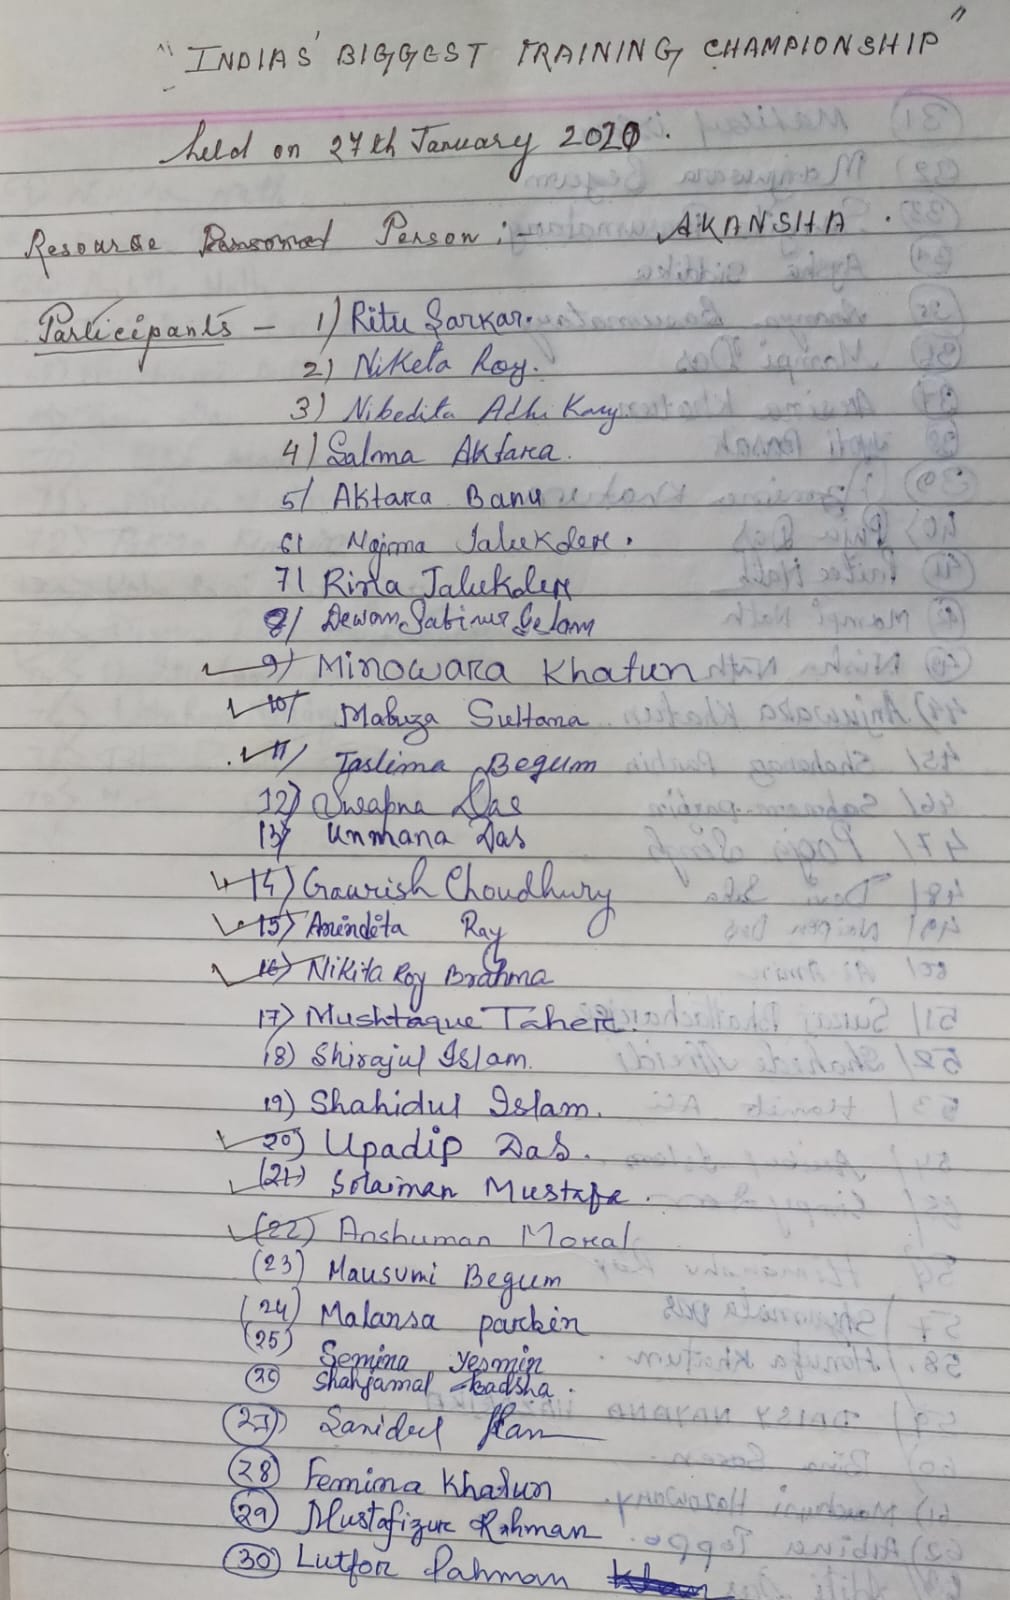 "INDIAS' BIGGEST TRAINING CHAMPIONSHIP"
held on 27th January 2020.
Resourse Person :- AKANSHA.
Participants - 1) Ritu Sarkar.
2) Niketa Roy.
3) Nibedita Adhi Kary
4) Salma Aktara.
5) Aktara Banu
6) Najma Talukder.
7) Rina Talukder
8) Dewan Sabinur Selam
9) Minowara Khatun
10) Mabuza Sultana
11) Taslima Begum
12) Swapna Das
13) Unmana Das
14) Gaurish Choudhury
15) Anindita Ray
16) Nikita Roy Brahma
17) Mushtaque Taher.
18) Shirajul Islam.
19) Shahidul Islam.
20) Upadip Das.
(21) Solaiman Mustafa.
(22) Anshuman Moral
(23) Mausumi Begum
(24) Malansa parbin
(25) Semina Yesmin
26 Shahjamal Badsha.
27) Sanidul
28 Femina Khatun
29 Mustafizur Rahman
30 Lutfor Rahman